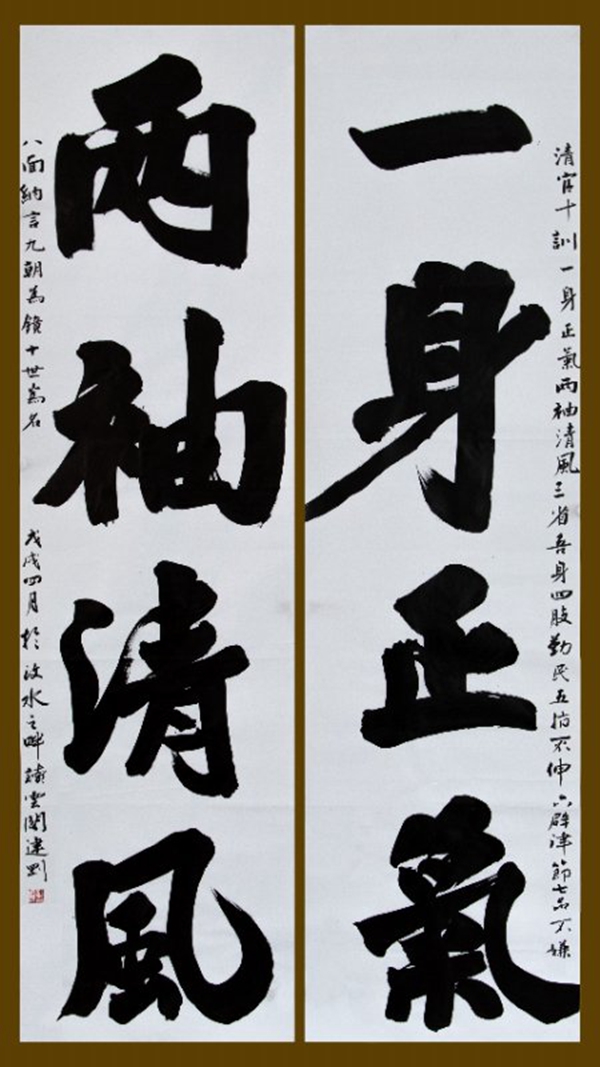 清官十訓一身正氣兩袖清風三省吾身四肢勤民五指不伸六辟津節七品不嫌
一身正氣
兩袖清風
八面納言九朝為鏡十世名
戊戌四月於汶水之畔雲閣建